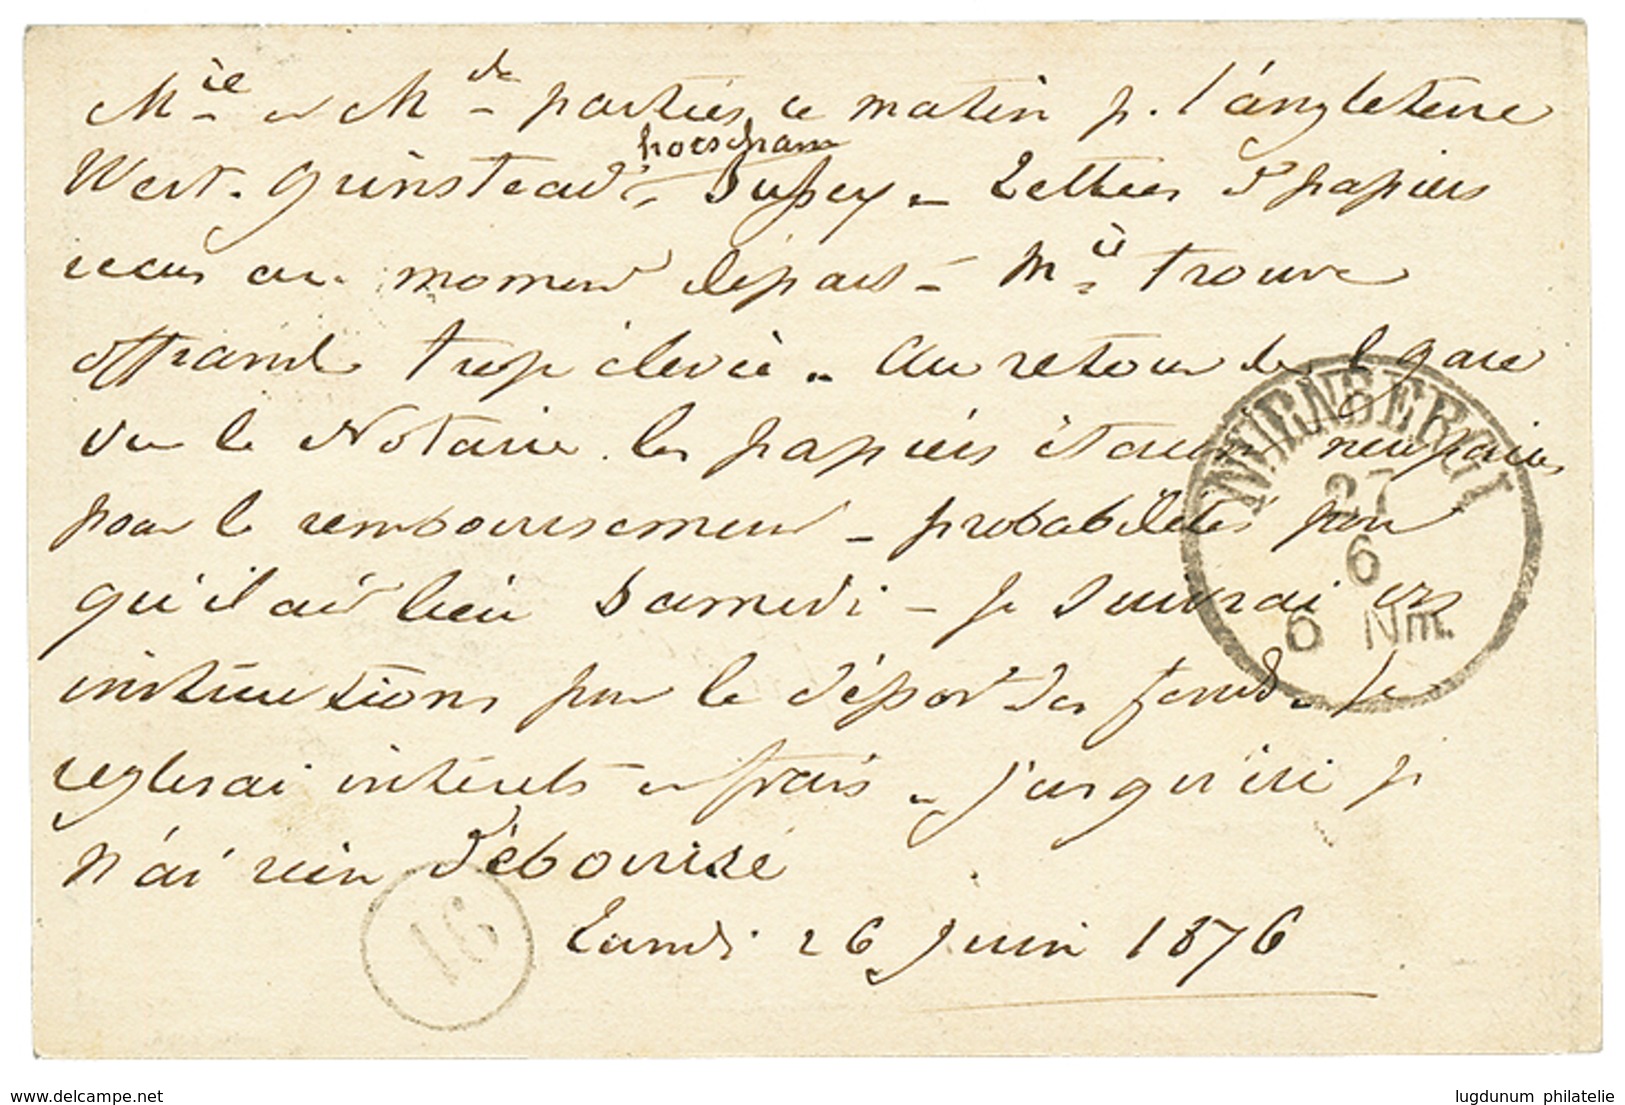 Mie et Mde parties ce matin p. l'angleterre
horsham
West. Grinstead, Sussex - Lettres & papiers
recus au moment départ - Mie trouve
offrande trop elevée - Au retour de l gare
vu le Notaire les papiers étaient
pour le remboursement - probabilités pour
qu'il ait lieu Samedi - je suivrai vos
instructions pour le dépot des fonds - Je
reglerai intérets et frais - jusqu'ici je
n'ai rien déboursé
Lundi 26 Juin 1876
NÜRNBERG I
27
6
6 Nm.
16
www.delcampe.net
lugdunum philatelie